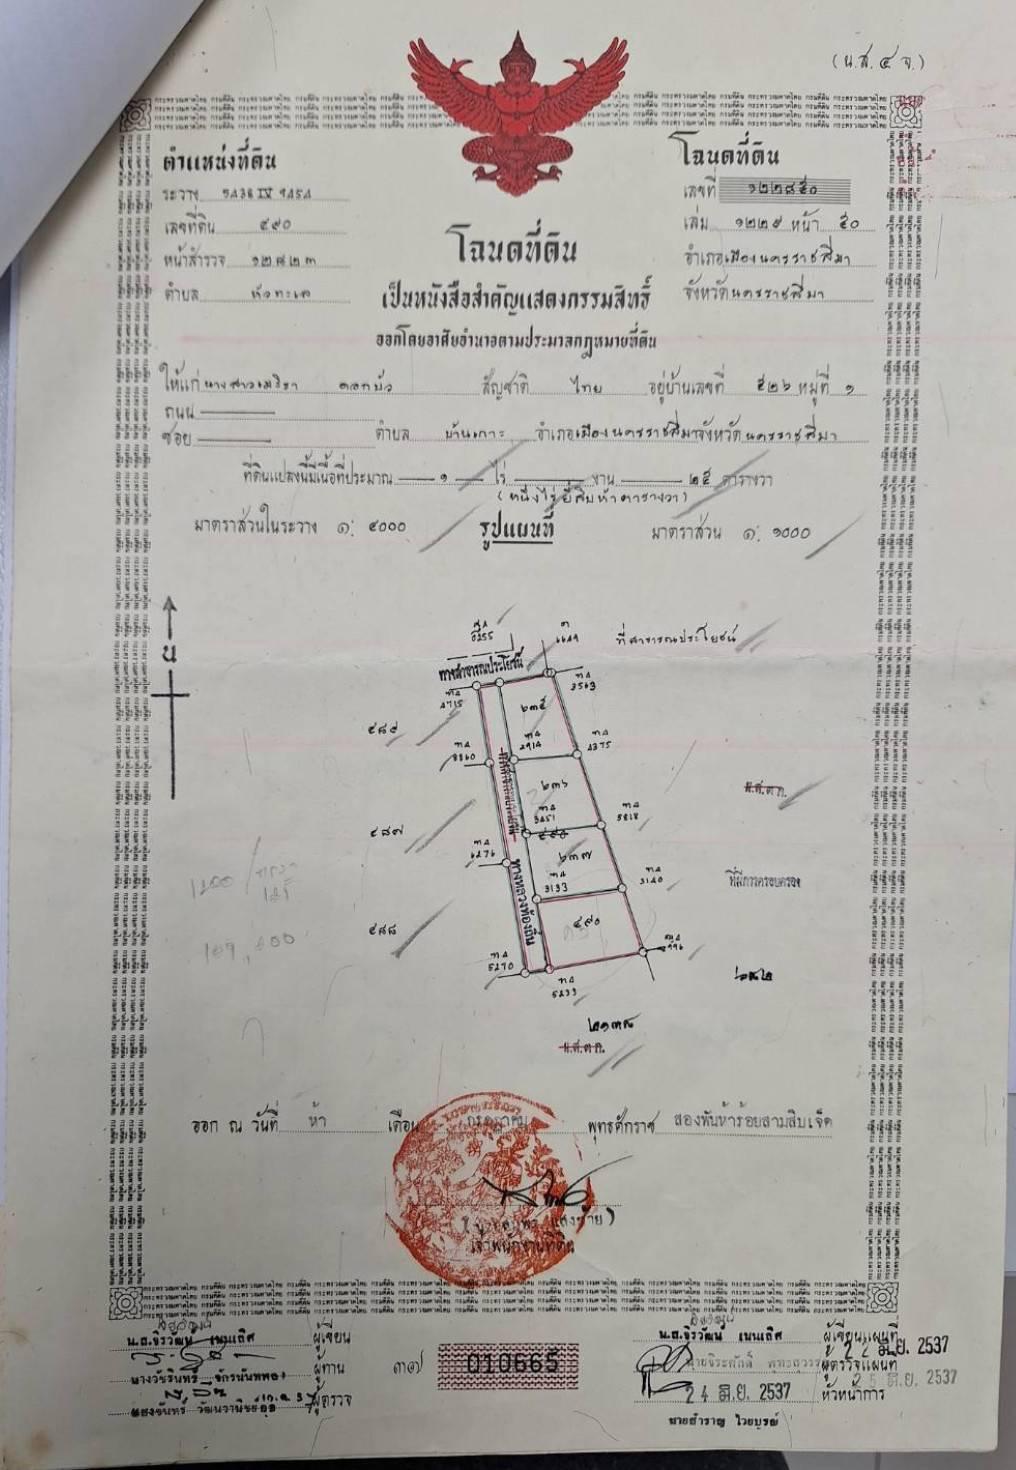 (น.ส.๔ จ.)
ตำแหน่งที่ดิน
ระวาง 5438 IV 9454
เลขที่ดิน ๔๙๐
หน้าสำรวจ ๑๒๘๒๓
ตำบล หัวทะเล
โฉนดที่ดิน
เลขที่ ๑๒๒๘๕๐
เล่ม ๑๒๒๙ หน้า ๕๐
อำเภอเมืองนครราชสีมา
จังหวัดนครราชสีมา
โฉนดที่ดิน
เป็นหนังสือสำคัญแสดงกรรมสิทธิ์
ออกโดยอาศัยอำนาจตามประมวลกฎหมายที่ดิน
ให้แก่ นางสาว สัญชาติ ไทย อยู่บ้านเลขที่ ๕๒๖ หมู่ที่ ๑
ถนน
ซอย ตำบล บ้านเกาะ อำเภอเมืองนครราชสีมา จังหวัดนครราชสีมา
ที่ดินแปลงนี้มีเนื้อที่ประมาณ ๑ ไร่ งาน ๒๕ ตารางวา
(หนึ่งไร่ยี่สิบห้าตารางวา)
มาตราส่วนในระวาง ๑: ๔๐๐๐ รูปแผนที่ มาตราส่วน ๑: ๑๐๐๐
น
ที่สาธารณประโยชน์
ทางสาธารณประโยชน์
4715
3563
๖๓๕
๔๘๙
2914
4375
8860
๖๓๖
น.ส.๓ ก.
3451
5818
๔๘๗
๔๙๐
6276
๖๓๗
3133
3140
ที่มีการครอบครอง
ทางหลวงท้องถิ่น
๔๘๘
๔๙๐
5270
5233
๒๑๓๘
น.ส.๓ ก.
ออก ณ วันที่ ห้า เดือน กรกฎาคม พุทธศักราช สองพันห้าร้อยสามสิบเจ็ด
เจ้าพนักงานที่ดิน
น.ส.จิรวัฒน์ เนนเลิศ ผู้เขียน
นางวัชรินทร์ จักรนันทพลง ผู้ทาน
แสงจันทร์ วัฒนวานิชย์กุล ผู้ตรวจ
๓๗) 010665
น.ส.จิรวัฒน์ เนนเลิศ ผู้เขียนแผนที่
22 มิ.ย. 2537
ผู้ตรวจแผนที่
มิ.ย. 2537
24 มิ.ย. 2537 หัวหน้าการ
นายสำราญ ไวยบูรณ์